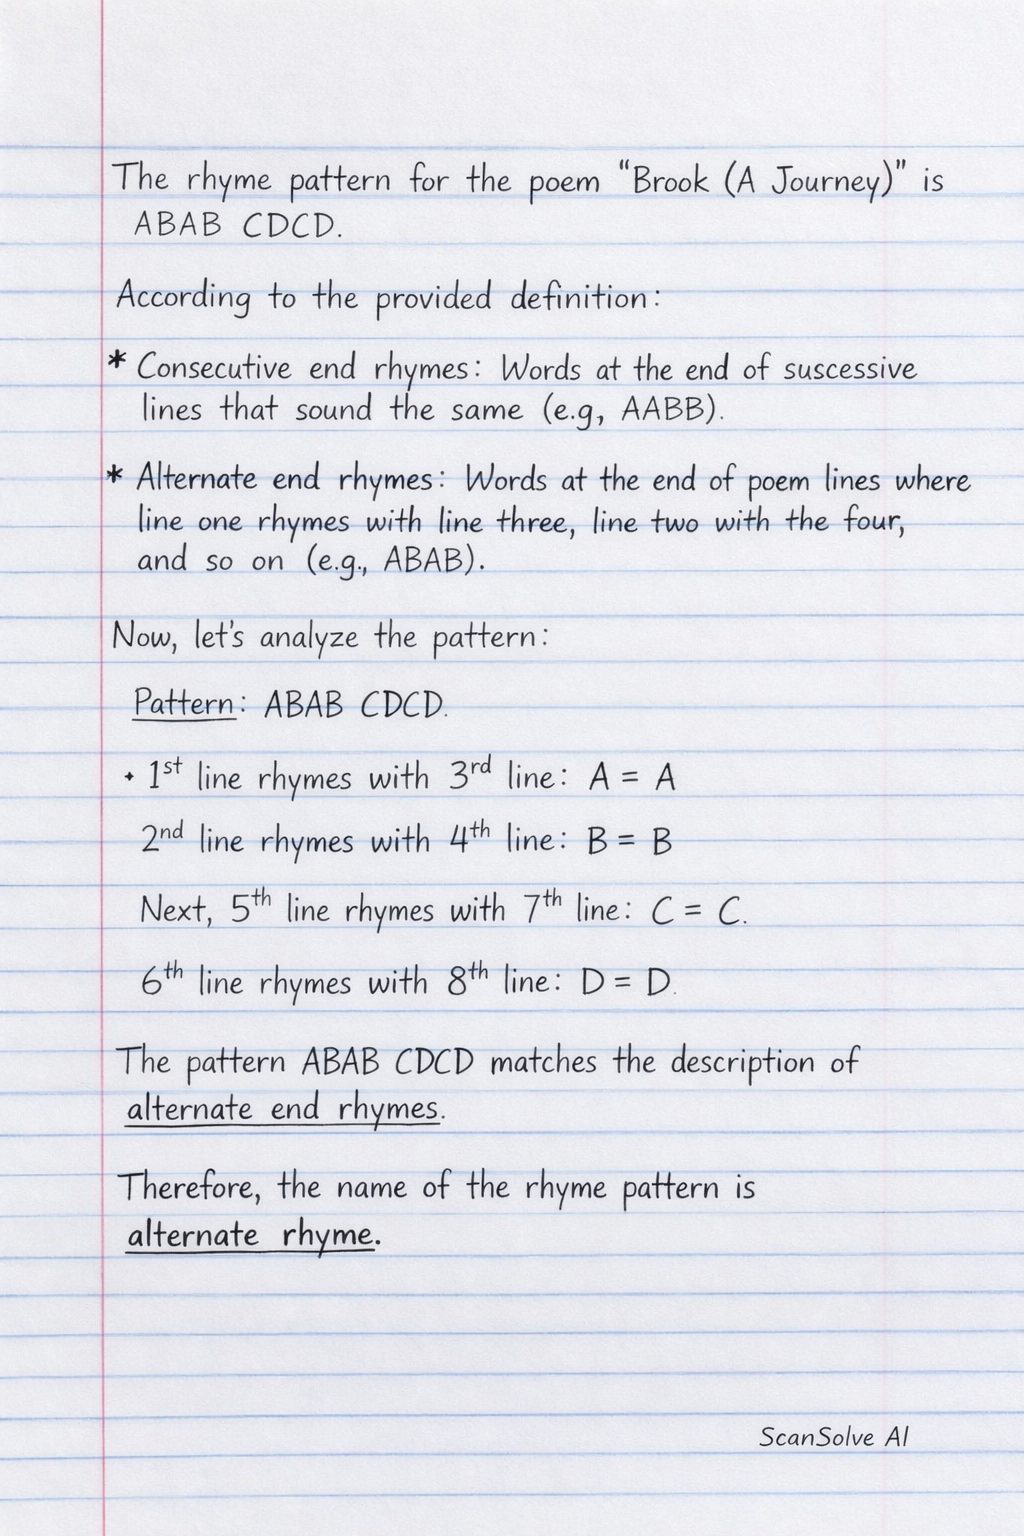 The rhyme pattern for the poem “Brook (A Journey)” is
ABAB CDCD.
According to the provided definition:
* Consecutive end rhymes: Words at the end of suscessive
lines that sound the same (e.g, AABB).
* Alternate end rhymes: Words at the end of poem lines where
line one rhymes with line three, line two with the four,
and so on (e.g., ABAB).
Now, let's analyze the pattern:
Pattern: ABAB CDCD.
• 1st line rhymes with 3rd line: A = A
2nd line rhymes with 4th line: B = B
Next, 5th line rhymes with 7th line: C = C.
6th line rhymes with 8th line: D = D.
The pattern ABAB CDCD matches the description of
alternate end rhymes.
Therefore, the name of the rhyme pattern is
alternate rhyme.
ScanSolve AI